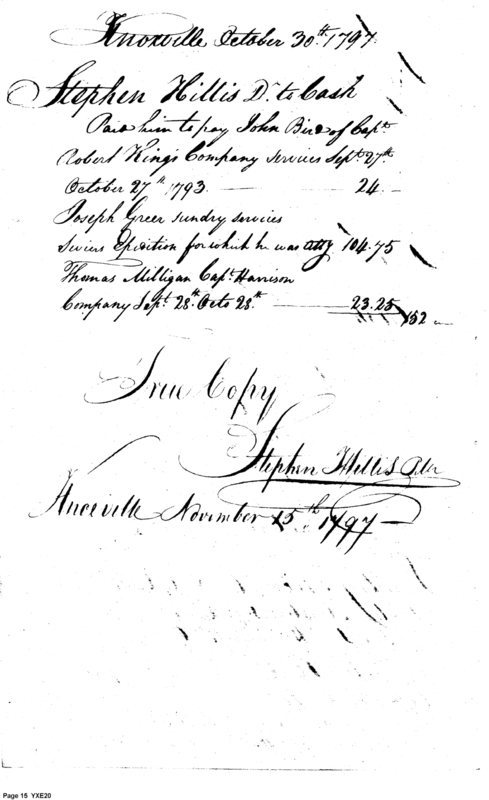 Knoxville October 30th. 1797.
Stephen Hillis Dr to Cash
Paid him to pay John Bird of Capt
Robert King's Company services Sept. 27th
October 27th 1793. — 24 —
Joseph Greer sundry services
Seviers Epedition for which he was atty 104.75
Thomas Milligan Capt Harrison
Company Sept 28th Octo 28th — 23.25
152 —
True Copy
Stephen Hillis
Knoxville November 15th 1797 —
Page 15 YXE20